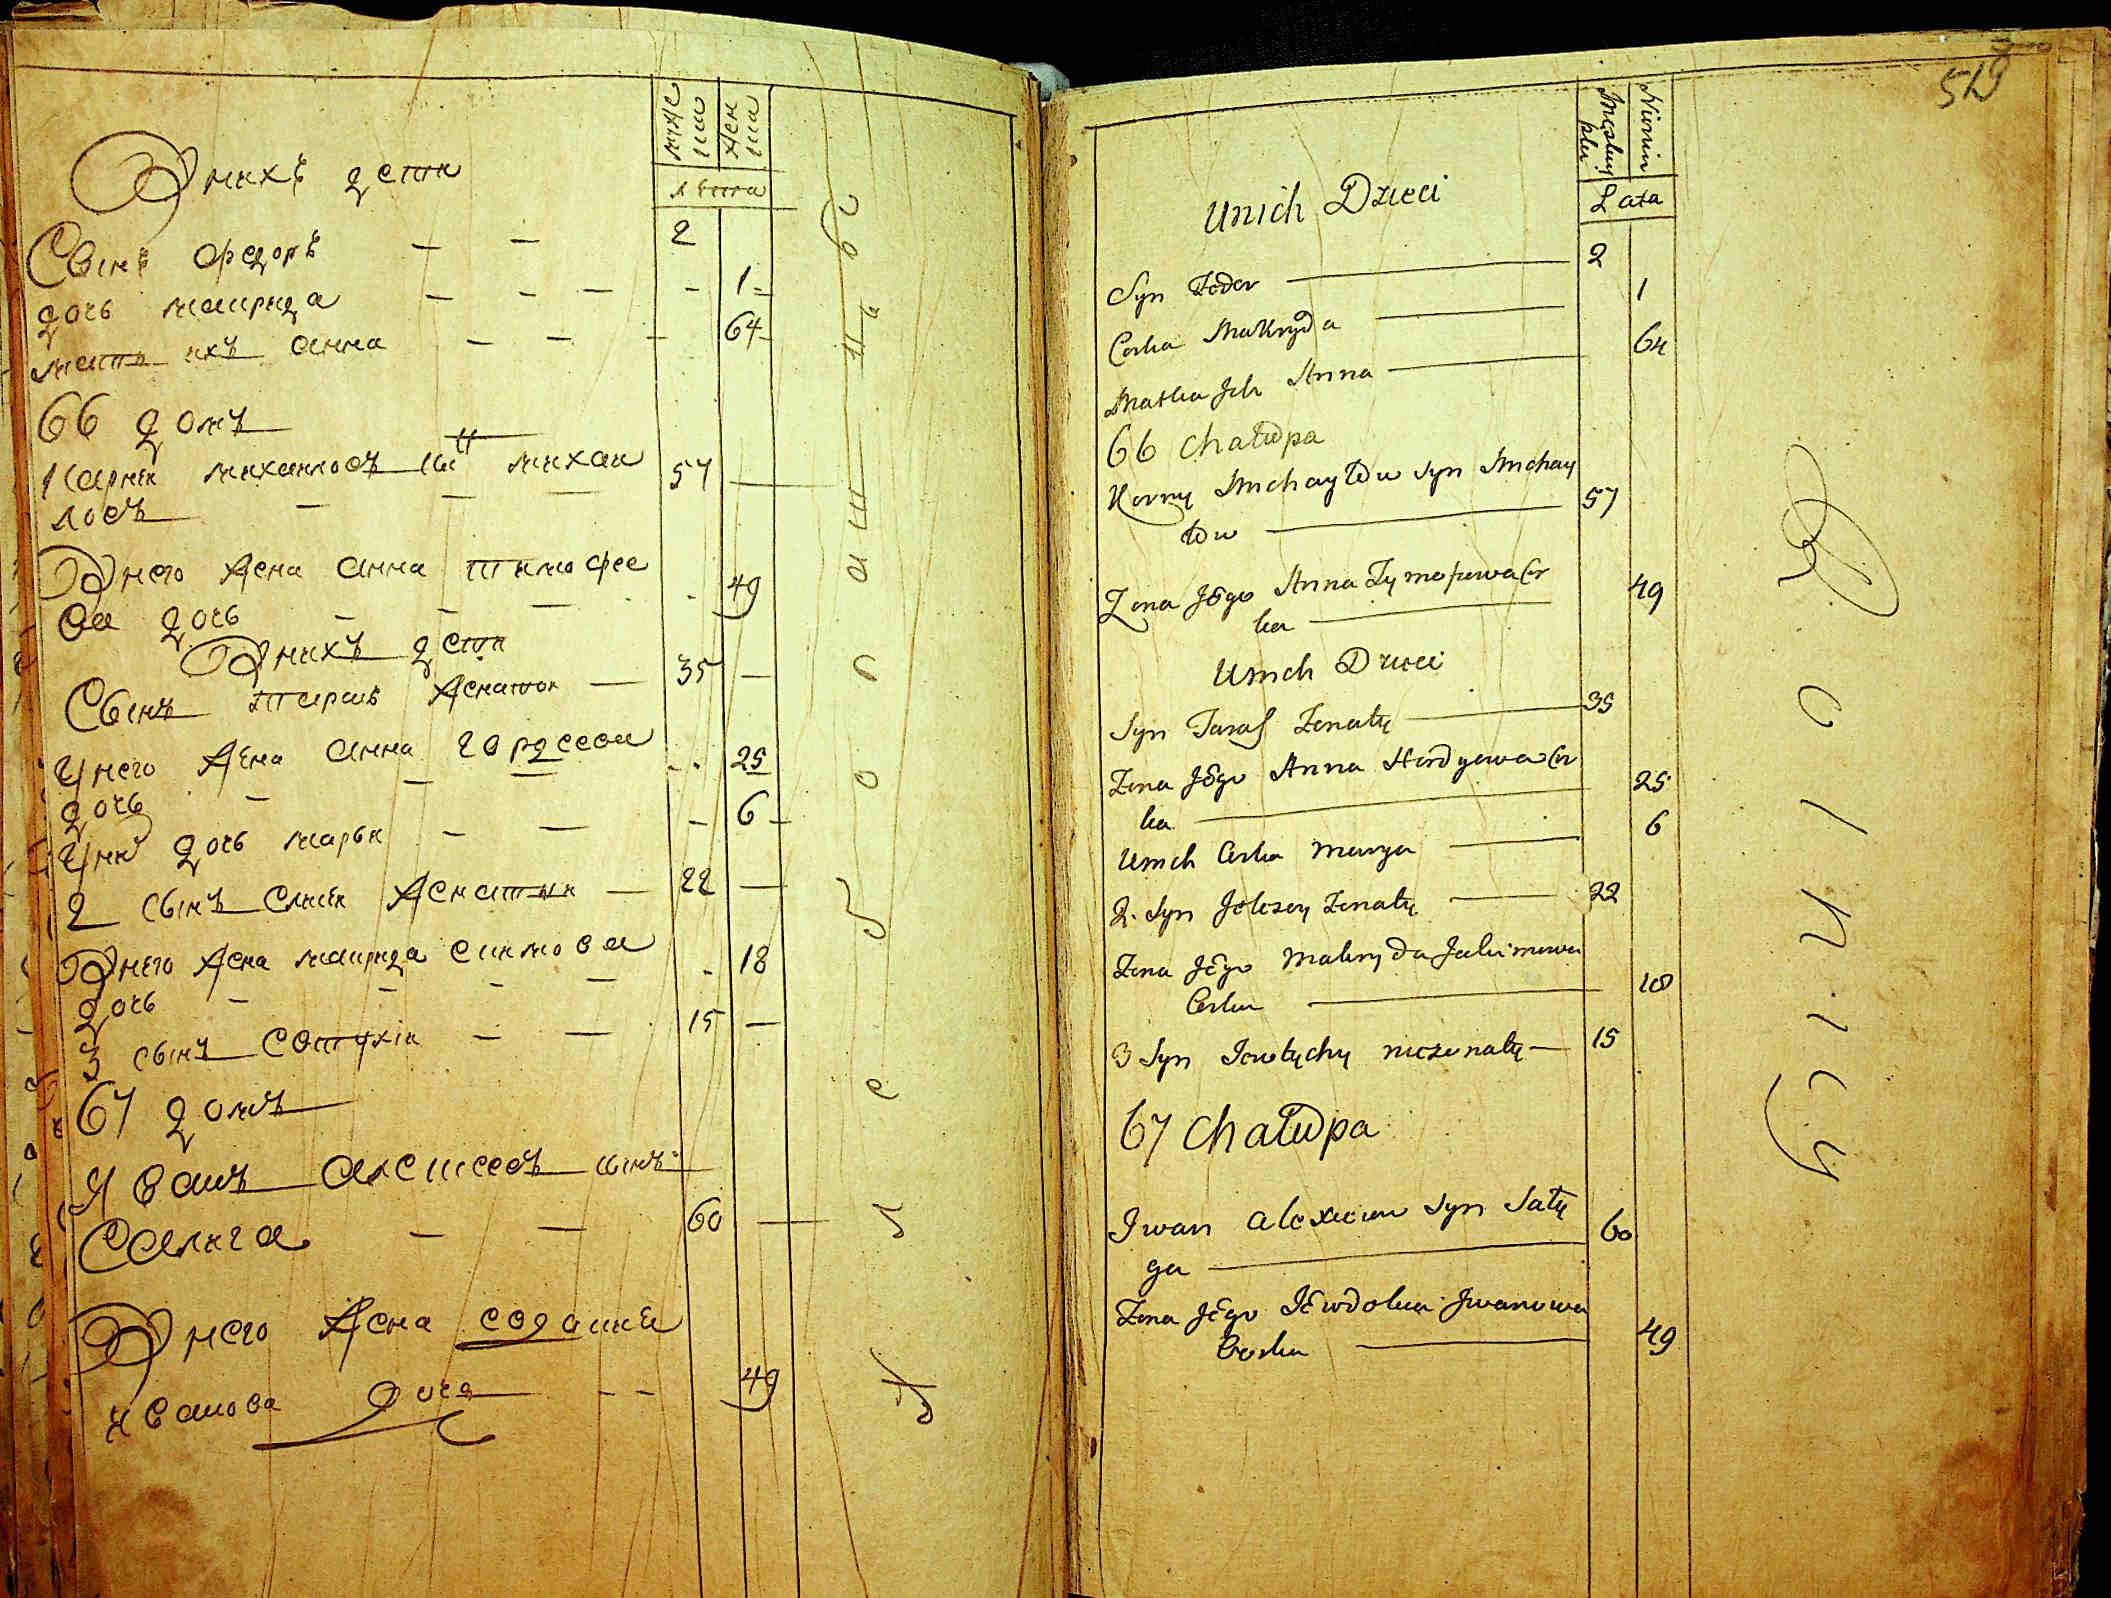 муже
ска
женска
лета
У нихъ дети
Сынъ Федоръ — — 2
дочь макрида — — — - 1
мать ихъ анна — — — 64
66 домъ
Карнѣй михаиловъ сынъ михаи
ловъ — — — 57 —
У него жена анна тимофее
ва дочь — — — - 49
У нихъ дети
Сынъ тарасъ женатои — 35 —
У него жена анна гордеева
дочь — — — 25
У них дочь марья — — - 6
2 сынъ елисей женатый — 22 —
У него жена макрида екимова
дочь — — — — 18
3 сынъ евтухий — — 15 —
67 домъ
Иванъ алексеевъ сынъ
салыга — — 60 —
У него жена евдокия
иванова дочь — — 49
519
Męskiey
płci
Niewia
Lata
U nich Dzieci
Syn Fedor — 2
Corka Makryda — 1
Matka Jch Anna — 64
66 Chałupa
Korny Michayłow syn Michay
łow — 57
Zona Jego Anna Tymofiewa Cor
ka — 49
U nich Dzieci
Syn Taras Zonaty — 35
Zona Jego Anna Hordyewa Cor
ka — 25
U nich Corka Marya — 6
2. Syn Jelizey Zonaty — 22
Zona Jego Makryda Jakimowa
Corka — 18
3 Syn Jewtychy niezonaty — 15
67 Chałupa
Jwan Alexieiew syn Sały
ga — 60
Zona Jego Jewdokia Jwanowa
Corka — 49
Rolnicy